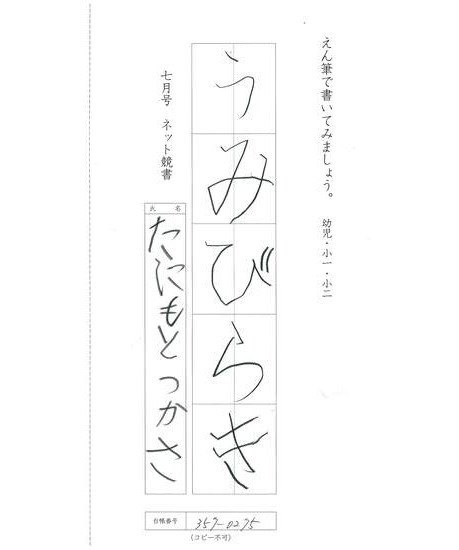 えん筆で書いてみましょう。 幼児・小一・小二
うみびらき
七月号 ネット競書
氏名
たにもとつかさ
台帳番号 357-0275
(コピー不可)